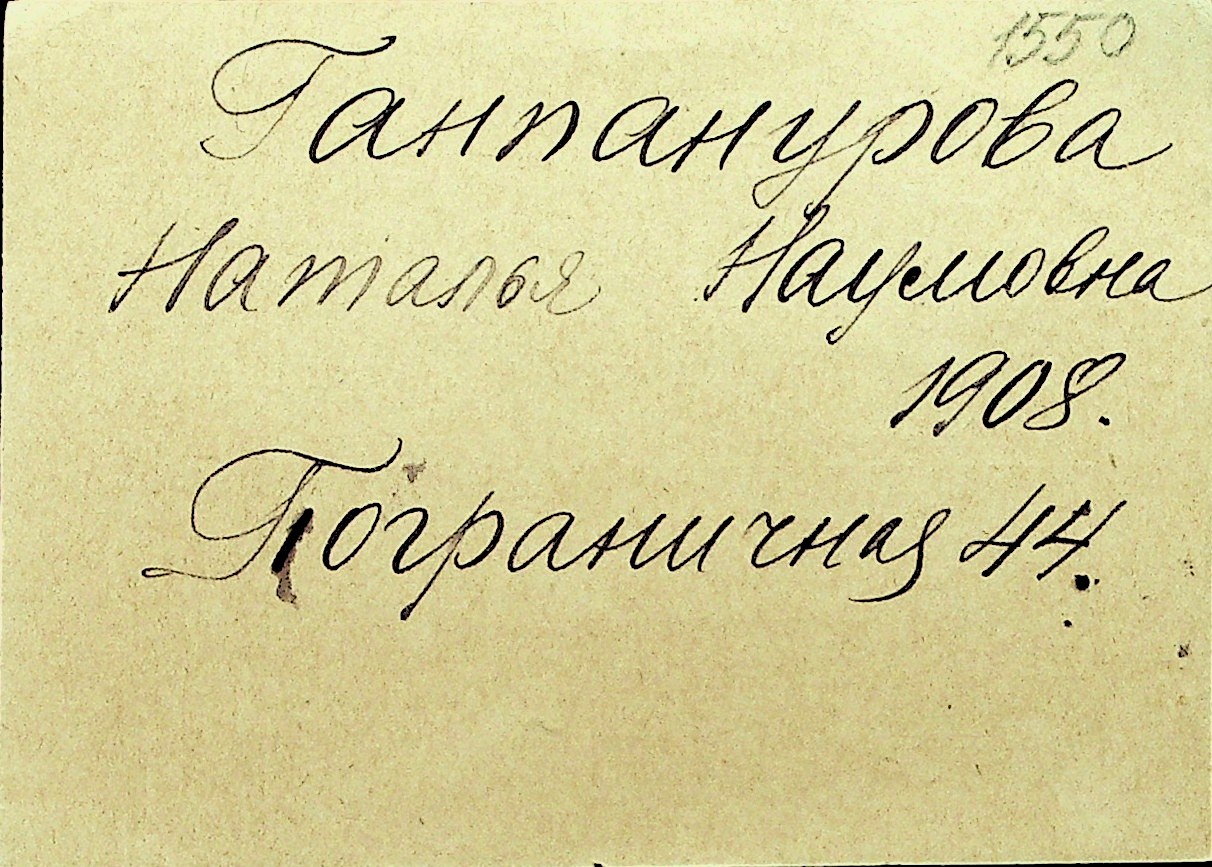 1550
Ганпанурова
Наталья Наумовна
1908.
Пограничная 44.